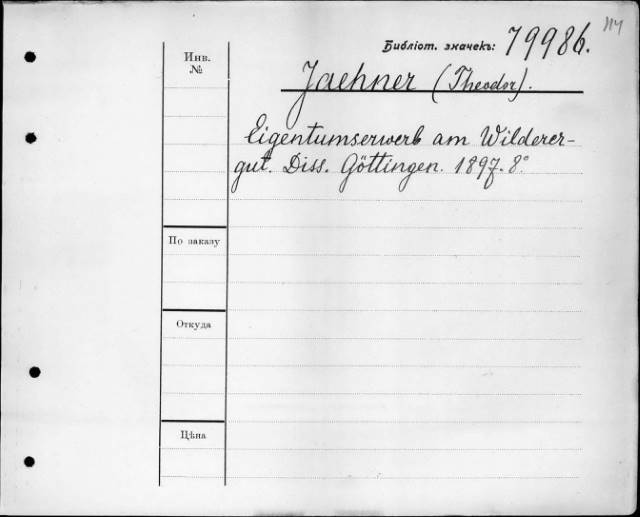 Библіот. значекъ: 79986.
Инв.
№
Jaehner (Theodor).
Eigentumserwerb am Wilderer-
gut. Diss. Göttingen. 1897. 8°
По заказу
Откуда
Цѣна